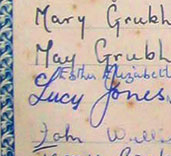 Mary Grubh
May Grubh
Esther Elizabeth
Lucy Jones
John Willi